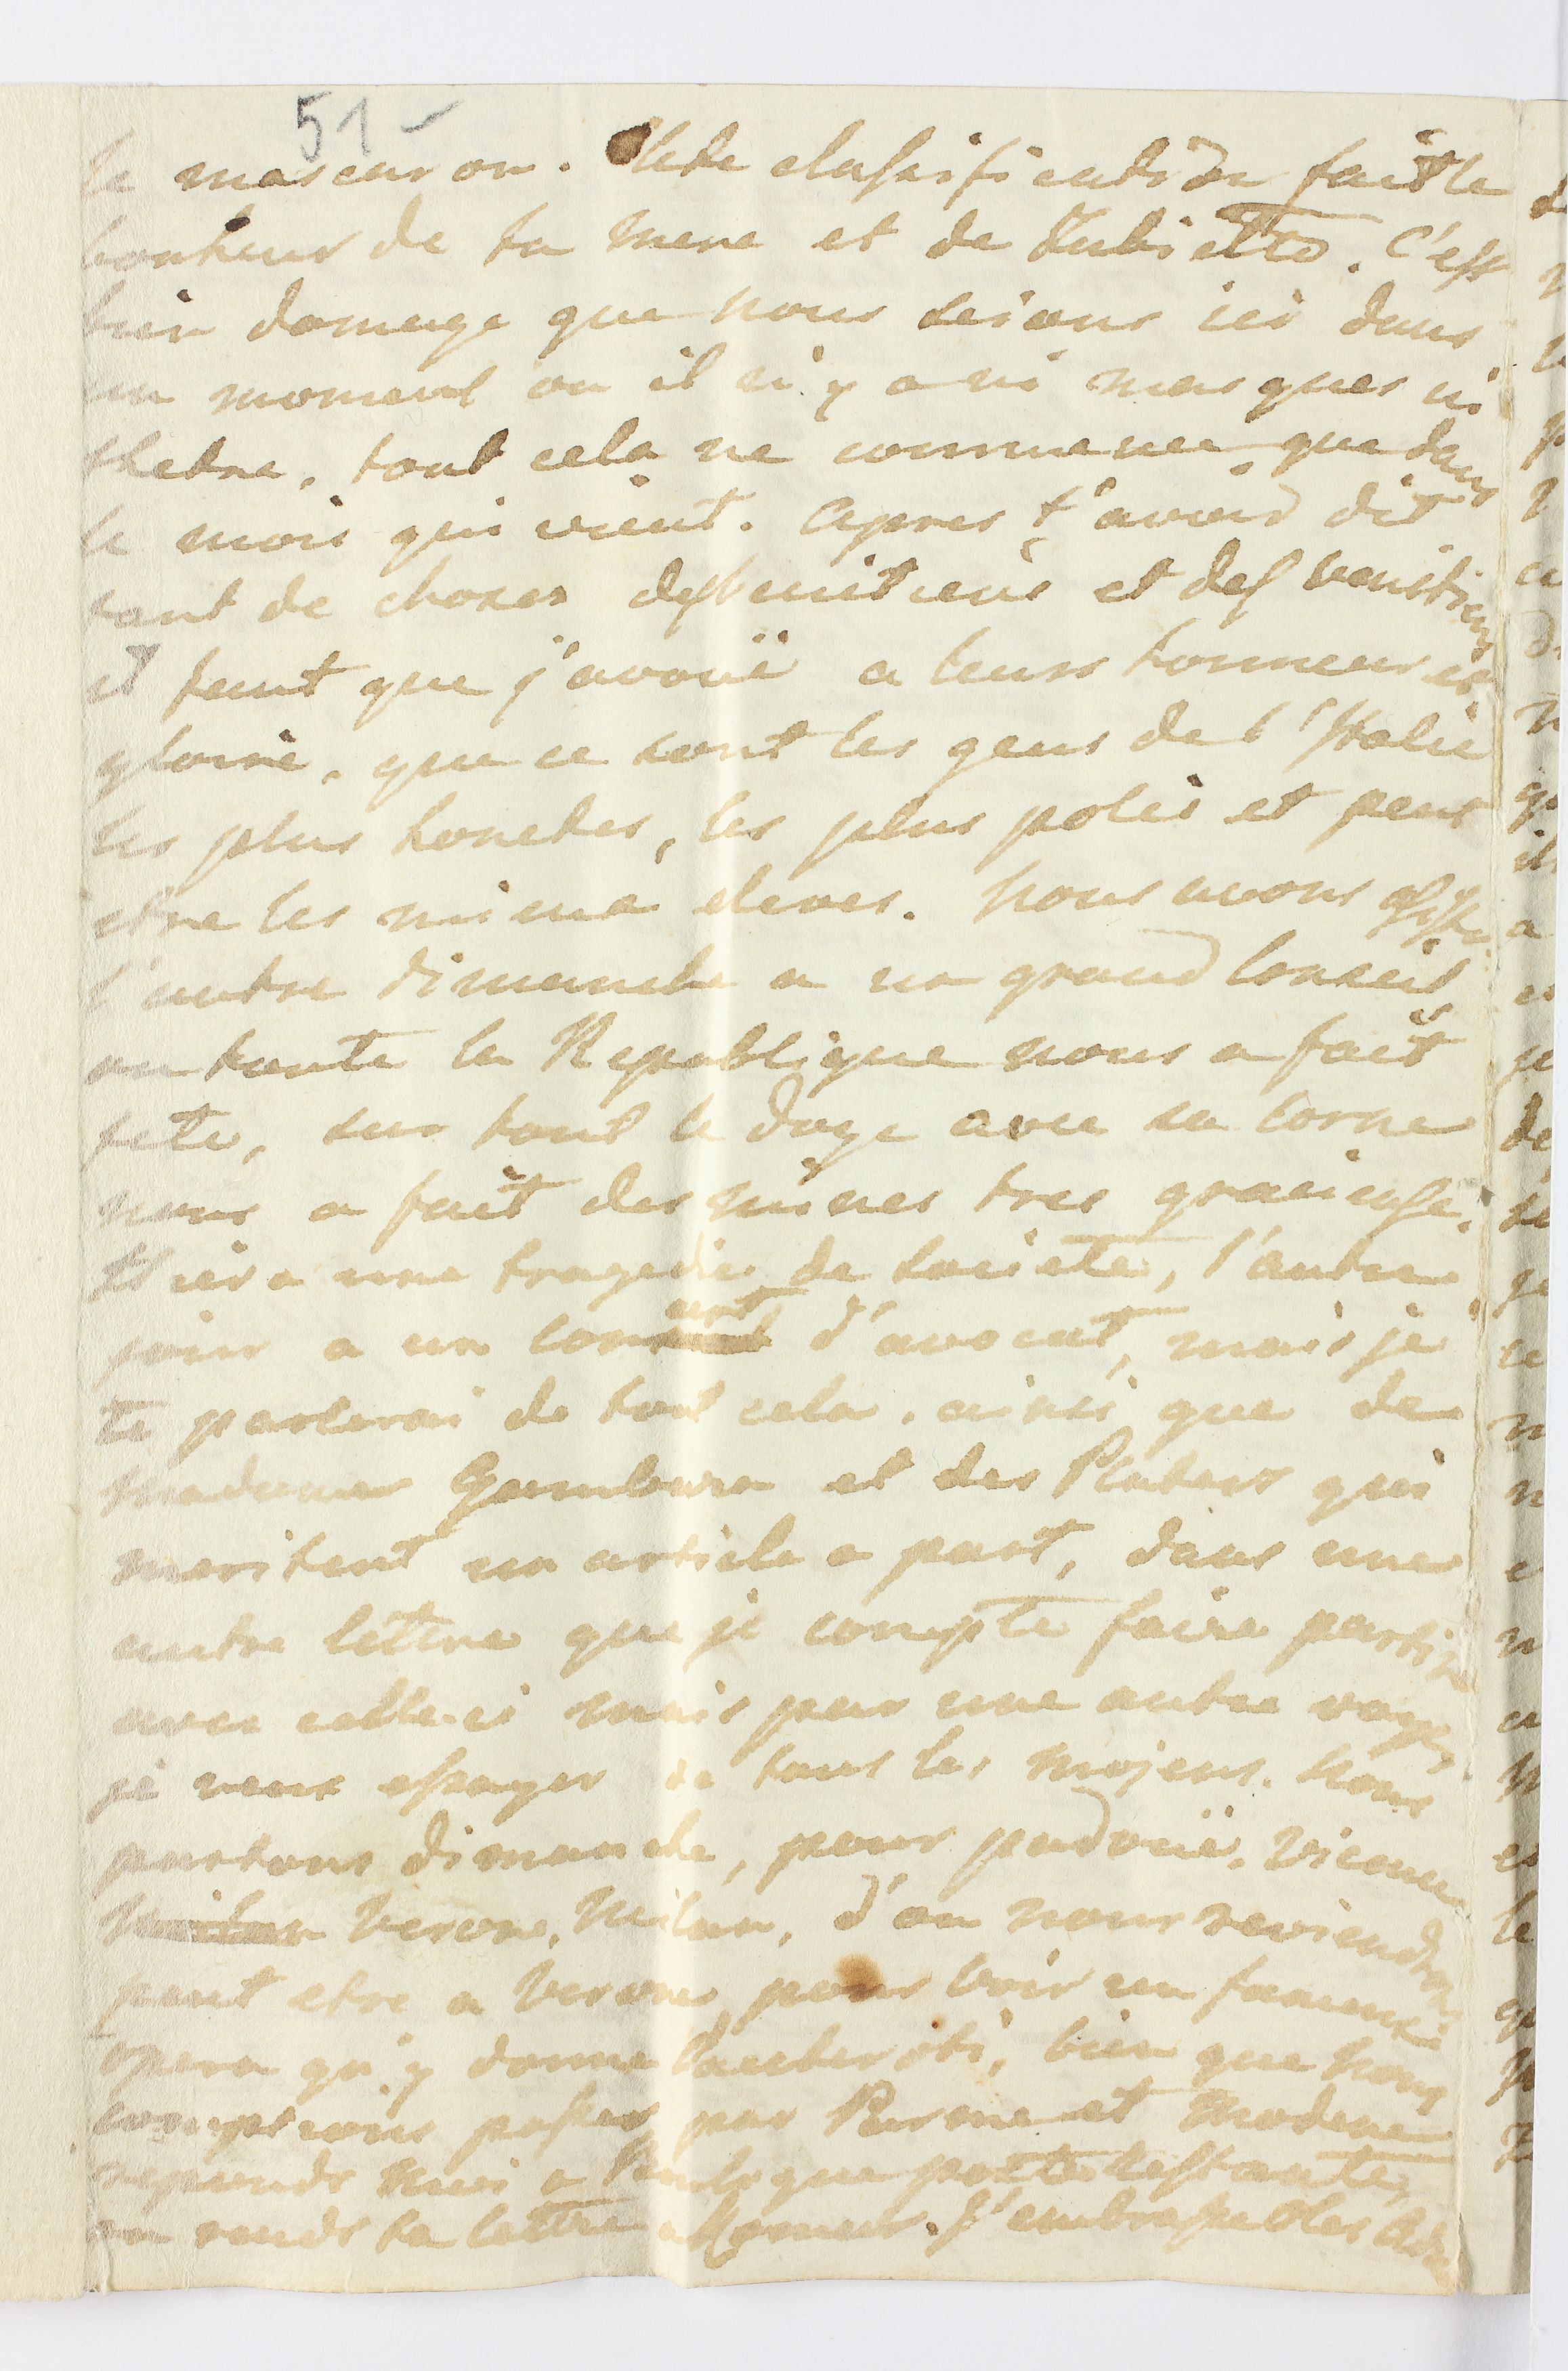 51 -
le mascaron. Cette classification fait le
bonheur de ta mere et de . C'est
bien domage que nous soions ici dans
un moment ou il n'y a ni masques ni
theatre, tout cela ne commence que dans
le mois qui vient. Apres t'avoir dit
tant de choses des venitiens et des
il faut que j'avouë a leurs honneur et
gloire, que ce sont les gens de l'Italie
les plus honetes, les plus polis et peut
etre les mieux eleves. Nous avons assisté
l'autre dimanche a un grand Conseil,
ou toute la Republique nous a fait
fete, sur tout le doge avec sa Corne
nous a fait des mines tres gracieuse.
Hier a une tragedie de societé, l'autre
jour a un concert d'avocat, mais je
te parlerai de tout cela, ainsi que de
madame Gambara et des Platers qui
meritent un article a part, dans une
autre lettre que je compte faire partir
avec celle-ci mais par une autre voye,
je veux essayer de tous les mojens. Nous
partons dimanche, pour padouë, Vicence
Verone, Milan, d'ou nous reviendrons
peut etre a Verone pour voir un fameux
opera qu'y donne Paccherotti, bien que nous
comptions passer par Parme et Modene
reponds moi a poste restante,
ou rends ta lettre a . J'embrasse les